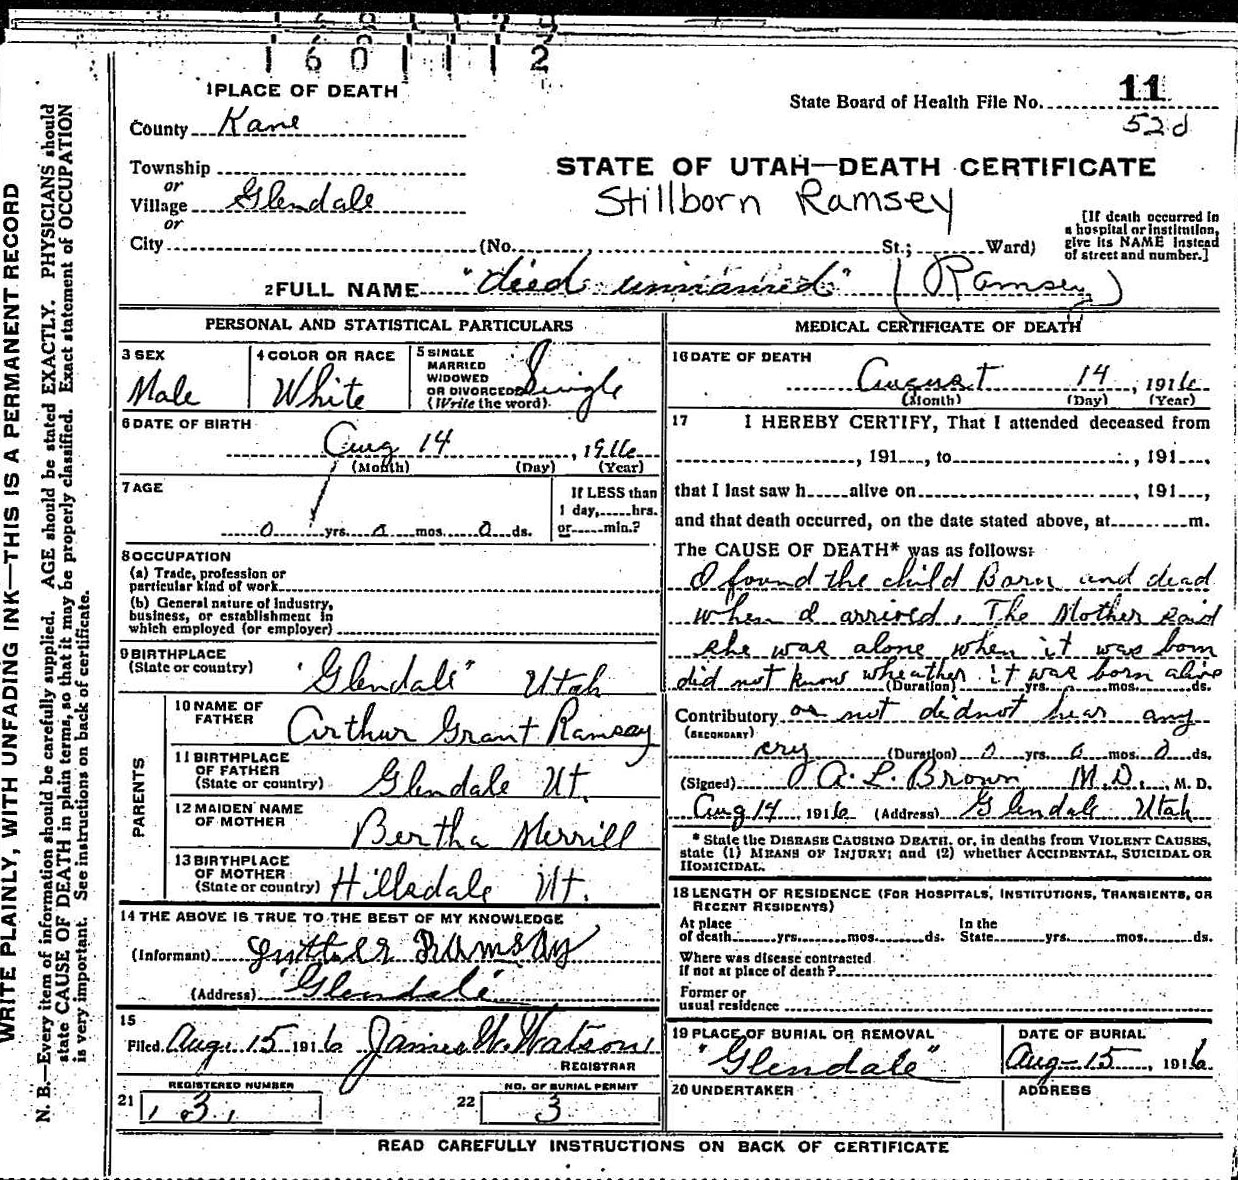 1 6 0 1 1 1 2
1 PLACE OF DEATH
State Board of Health File No. 11
County Kane
52d
Township
or
Village Glendale
or
City (No. St.; Ward)
STATE OF UTAH—DEATH CERTIFICATE
Stillborn Ramsey
[If death occurred in
a hospital or institution,
give its NAME instead
of street and number.]
2 FULL NAME "died unnamed" (Ramsey)
PERSONAL AND STATISTICAL PARTICULARS
3 SEX
Male
4 COLOR OR RACE
White
5 SINGLE
MARRIED
WIDOWED
OR DIVORCED
(Write the word)
Single
6 DATE OF BIRTH
Aug 14, 1916
(Month) (Day) (Year)
7 AGE
0 yrs. 0 mos. 0 ds.
If LESS than
1 day, hrs.
or min.?
8 OCCUPATION
(a) Trade, profession or
particular kind of work
(b) General nature of industry,
business, or establishment in
which employed (or employer)
9 BIRTHPLACE
(State or country) "Glendale" Utah
PARENTS
10 NAME OF
FATHER Arthur Grant Ramsay
11 BIRTHPLACE
OF FATHER
(State or country) Glendale Ut.
12 MAIDEN NAME
OF MOTHER Bertha Merrill
13 BIRTHPLACE
OF MOTHER
(State or country) Hillsdale Ut.
14 THE ABOVE IS TRUE TO THE BEST OF MY KNOWLEDGE
(Informant) Ramsay
(Address) "Glendale"
15
Filed Aug. 15 1916 James W. Watson
REGISTRAR
REGISTERED NUMBER
21 3
NO. OF BURIAL PERMIT
22 3
MEDICAL CERTIFICATE OF DEATH
16 DATE OF DEATH
August 14, 1916
(Month) (Day) (Year)
17 I HEREBY CERTIFY, That I attended deceased from
, 191 , to , 191 ,
that I last saw h alive on , 191 ,
and that death occurred, on the date stated above, at m.
The CAUSE OF DEATH* was as follows:
I found the child Born and dead
when I arrived, The Mother said
she was alone when it was born
did not know wheather it was born alive
(Duration) yrs. mos. ds.
Contributory or not didnot hear any
(SECONDARY)
cry (Duration) 0 yrs. 0 mos. 0 ds.
(Signed) A. L. Brown M.D., M. D.
Aug 14, 1916 (Address) Glendale Utah
* State the DISEASE CAUSING DEATH, or, in deaths from VIOLENT CAUSES,
state (1) MEANS OF INJURY; and (2) whether ACCIDENTAL, SUICIDAL OR
HOMICIDAL.
18 LENGTH OF RESIDENCE (FOR HOSPITALS, INSTITUTIONS, TRANSIENTS, OR
RECENT RESIDENTS)
At place
of death yrs. mos. ds.
In the
State yrs. mos. ds.
Where was disease contracted
if not at place of death?
Former or
usual residence
19 PLACE OF BURIAL OR REMOVAL
"Glendale"
DATE OF BURIAL
Aug 15, 1916
20 UNDERTAKER
ADDRESS
READ CAREFULLY INSTRUCTIONS ON BACK OF CERTIFICATE
WRITE PLAINLY, WITH UNFADING INK—THIS IS A PERMANENT RECORD
N. B.—Every item of information should be carefully supplied. AGE should be stated EXACTLY. PHYSICIANS should
state CAUSE OF DEATH in plain terms, so that it may be properly classified. Exact statement of OCCUPATION
is very important. See instructions on back of certificate.